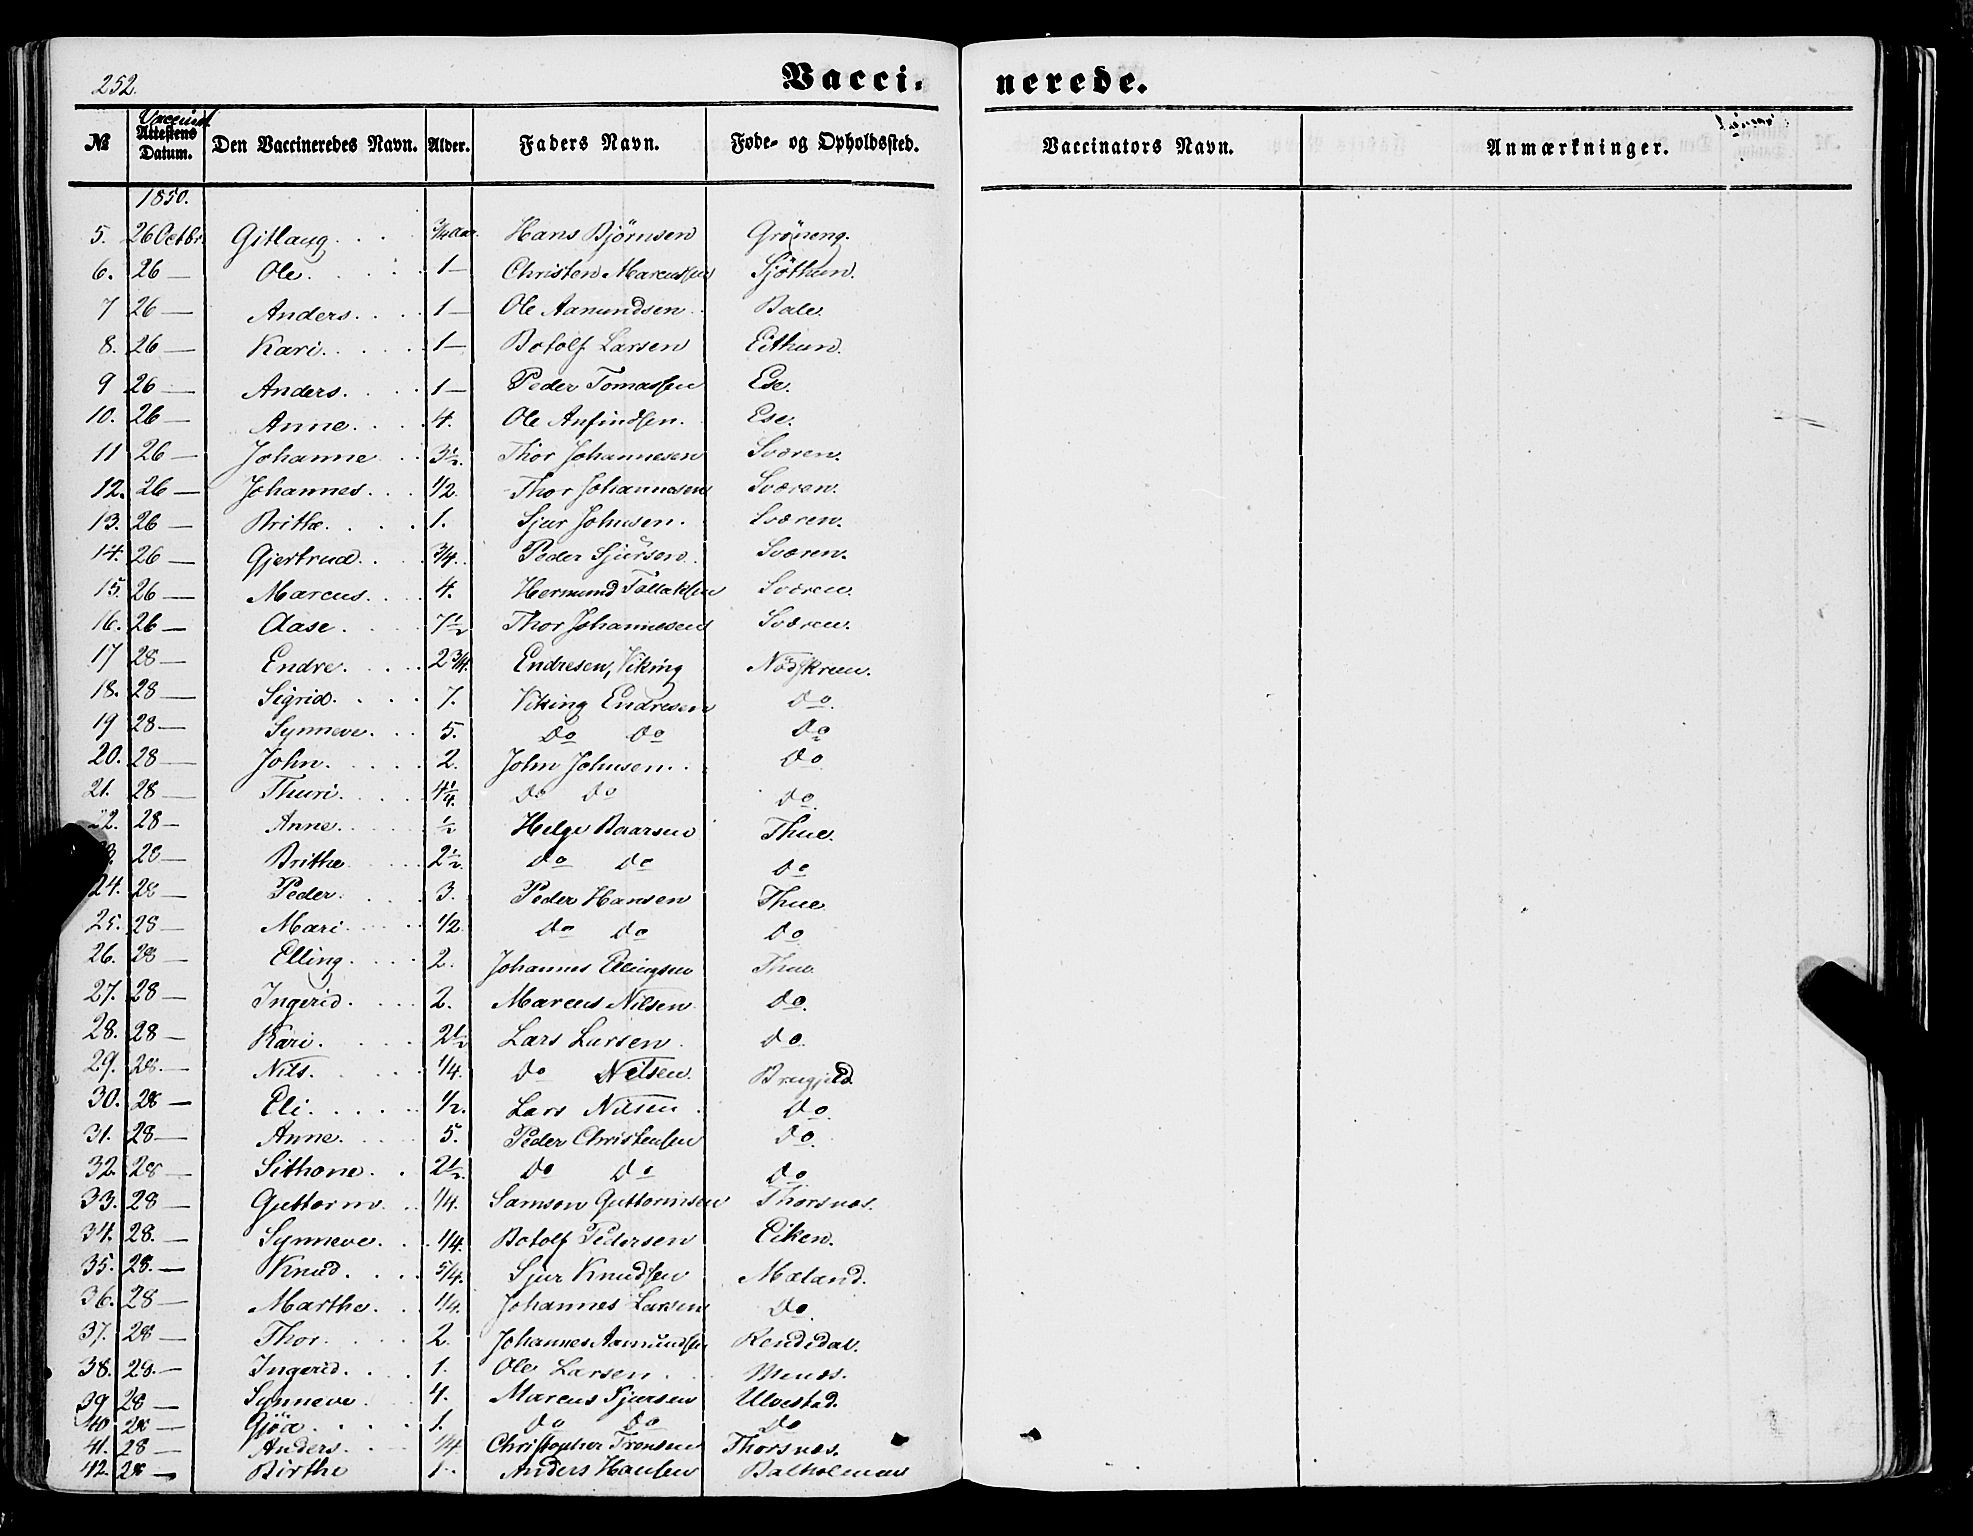 252.
Vacci-
nerede.
№
Vaccinat.
Attestens Datum.
Den Vaccineredes Navn.
Alder.
Faders Navn.
Føde- og Opholdssted.
Vaccinators Navn.
Anmærkninger.
1850.
5. 26 Octbr. Gitlaug. 3/4 Aar. Hans Bjørnsen Gröneng.
6. 26 — Ole. 1 — Christen Marcussen Sjöthun.
7 26 — Anders. 1 — Ole Aamundsen Bale.
8. 26 — Kari. 1 — Botolf Larsen Eithun.
9 26 — Anders. 1 — Peder Tomassen Ese.
10. 26 — Anne. 4. Ole Anfindsen. Ese.
11 26 — Johanne 3 1/2. Thor Johannesen Sværen.
12. 26 — Johannes. 1/2. Thor Johannesen Sværen.
13. 26 — Brithe. 1. Sjur Johnsen. Sværen.
14. 26 — Gjertrud. 3/4. Peder Sjursen. Sværen.
15. 26 — Marcus. 4. Hermund Tollaksen Sværen.
16. 26 — Aase. 7 1/2 Thor Johannesen Sværen.
17 28 — Endre. 2 3/4. Endresen, Viking Nödskreen.
18. 28 — Sigrid. 7. Viking Endresen do.
19 28 — Synneve. 5. do do do
20. 28 — John. 2. John Johnsen. do
21. 28 — Thuri. 4 1/4. do do do.
22. 28 — Anne. 1/2 Helge Baarsen Thue.
28 — Brithe 2 1/2. do do do
24. 28 — Peder. 3. Peder Hansen Thue
25. 28 — Mari. 1/2 do do do
26. 28 — Elling. 2. Johannes Ellingsen Thue
27. 28 — Ingerid. 2. Marcus Nilsen do.
28. 28 — Kari. 2 1/2 Lars Larsen. do.
29. 28. — Nils. 1/4. do Nilsen.
30. 28 — Eli. 1/2. Lars Nilsen do.
31. 28 — Anne. 5. Peder Christensen do.
32. 28 — Sithone. 2 1/2. do do do
33. 28 — Guttorm. 1/4. Samson Guttormsen Thorsnæs.
34. 28. — Synneve. 1/4. Botolf Pedersen Eiken.
35. 28. — Knud. 5/4. Sjur Knudsen Mæland.
36. 28 — Marthe. 1/4. Johannes Larsen do.
37. 28 — Thor. 2. Johannes Aamundsen Rendedal.
38. 28. — Ingerid. 1. Ole Larsen. Menæs.
39 28 — Synneve 4. Marcus Sjursen Ulvestad.
40 28 — Gjöa 1. do do do
41. 28 — Anders. 1/4 Christopher Tronsen Thorsnæs.
42. 28 — Birthe 1. Anders Hansen Balholmen